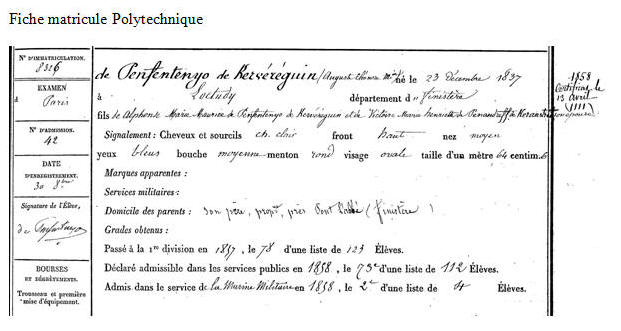 Fiche matricule Polytechnique
N° D'IMMATRICULATION.
8326
EXAMEN
à Paris
N° D'ADMISSION.
42
DATE
D'ENREGISTREMENT.
30 8bre
Signature de l'Élève,
de Penfentenyo
BOURSES
ET DÉGRÈVEMENTS.
Trousseau et première
mise d'équipement.
de Penfentenyo de Kervéréguin (Auguste né le 23 Décembre 1837
à Loctudy département d' finistère
fils de Alphonse Marie Maurice de Penfentenyo de Kervéréguin et de Victoire Marie Henriette de
Signalement : Cheveux et sourcils ch. clair front haut nez moyen
yeux bleus bouche moyenne menton rond visage ovale taille d'un mètre 64 centim.
Marques apparentes :
Services militaires :
Domicile des parents : son père, propre, près Pont l'abbé (finistère)
Grades obtenus :
Passé à la 1re division en 1857, le 78 d'une liste de 123 Élèves.
Déclaré admissible dans les services publics en 1858, le 73e d'une liste de 112 Élèves.
Admis dans le service de la Marine Militaire en 1858, le 2e d'une liste de 4 Élèves.
1858
13 avril
(1111)